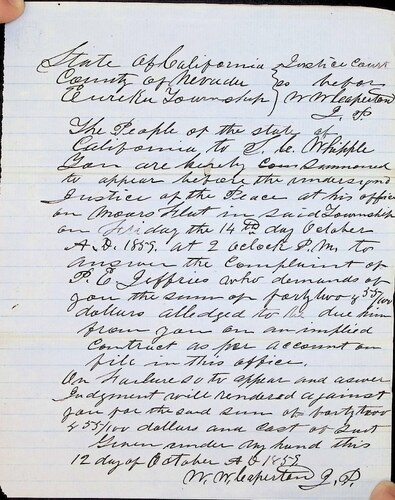 State of California } Justice Court
County of Nevada } so before
Eureka Township } W W Caperton
J. P
The People of the state of
California to S. C. Whipple
You are hereby Cous summoned
to appear before the undersigned
Justice of the Peace at his office
on Moors Flat in said Township
on Friday the 14th day October
A.D. 1859. at 2 Oclock P.M. to
answer the Complaint of
P. E. Jeffries who demands of
you the sum of forty two & 55/100
dollars alledged to be due him
from you on an implied
Contract as per account on
file in this office.
On Failure so to appear and aswer
Judgment will rendered against
you for the said sum of forty two
& 55/100 dollars and Cost of Suit
Given under my hand this
12 day of October A D 1859
W. W. Caperton J. P.